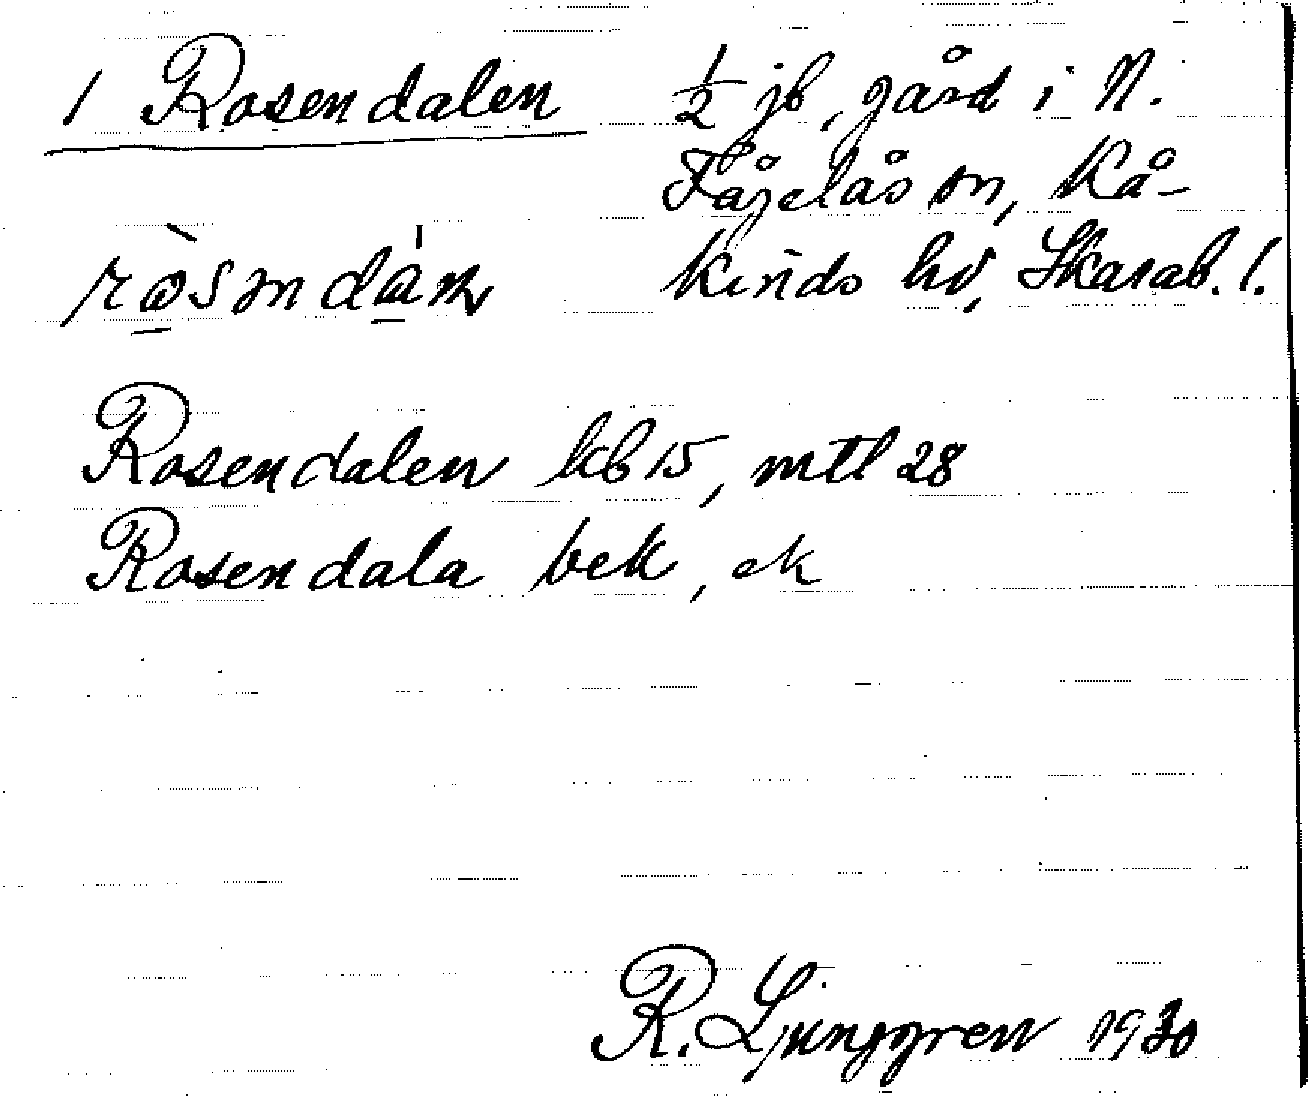 1 Rosendalen ½ jb, gård i N.
Fågelås sn, Kå-
kinds hd, Skarab. l.
Rosendalen kb 15, mtl 28
Rosendala bek, ek
R. Ljunggren 1930